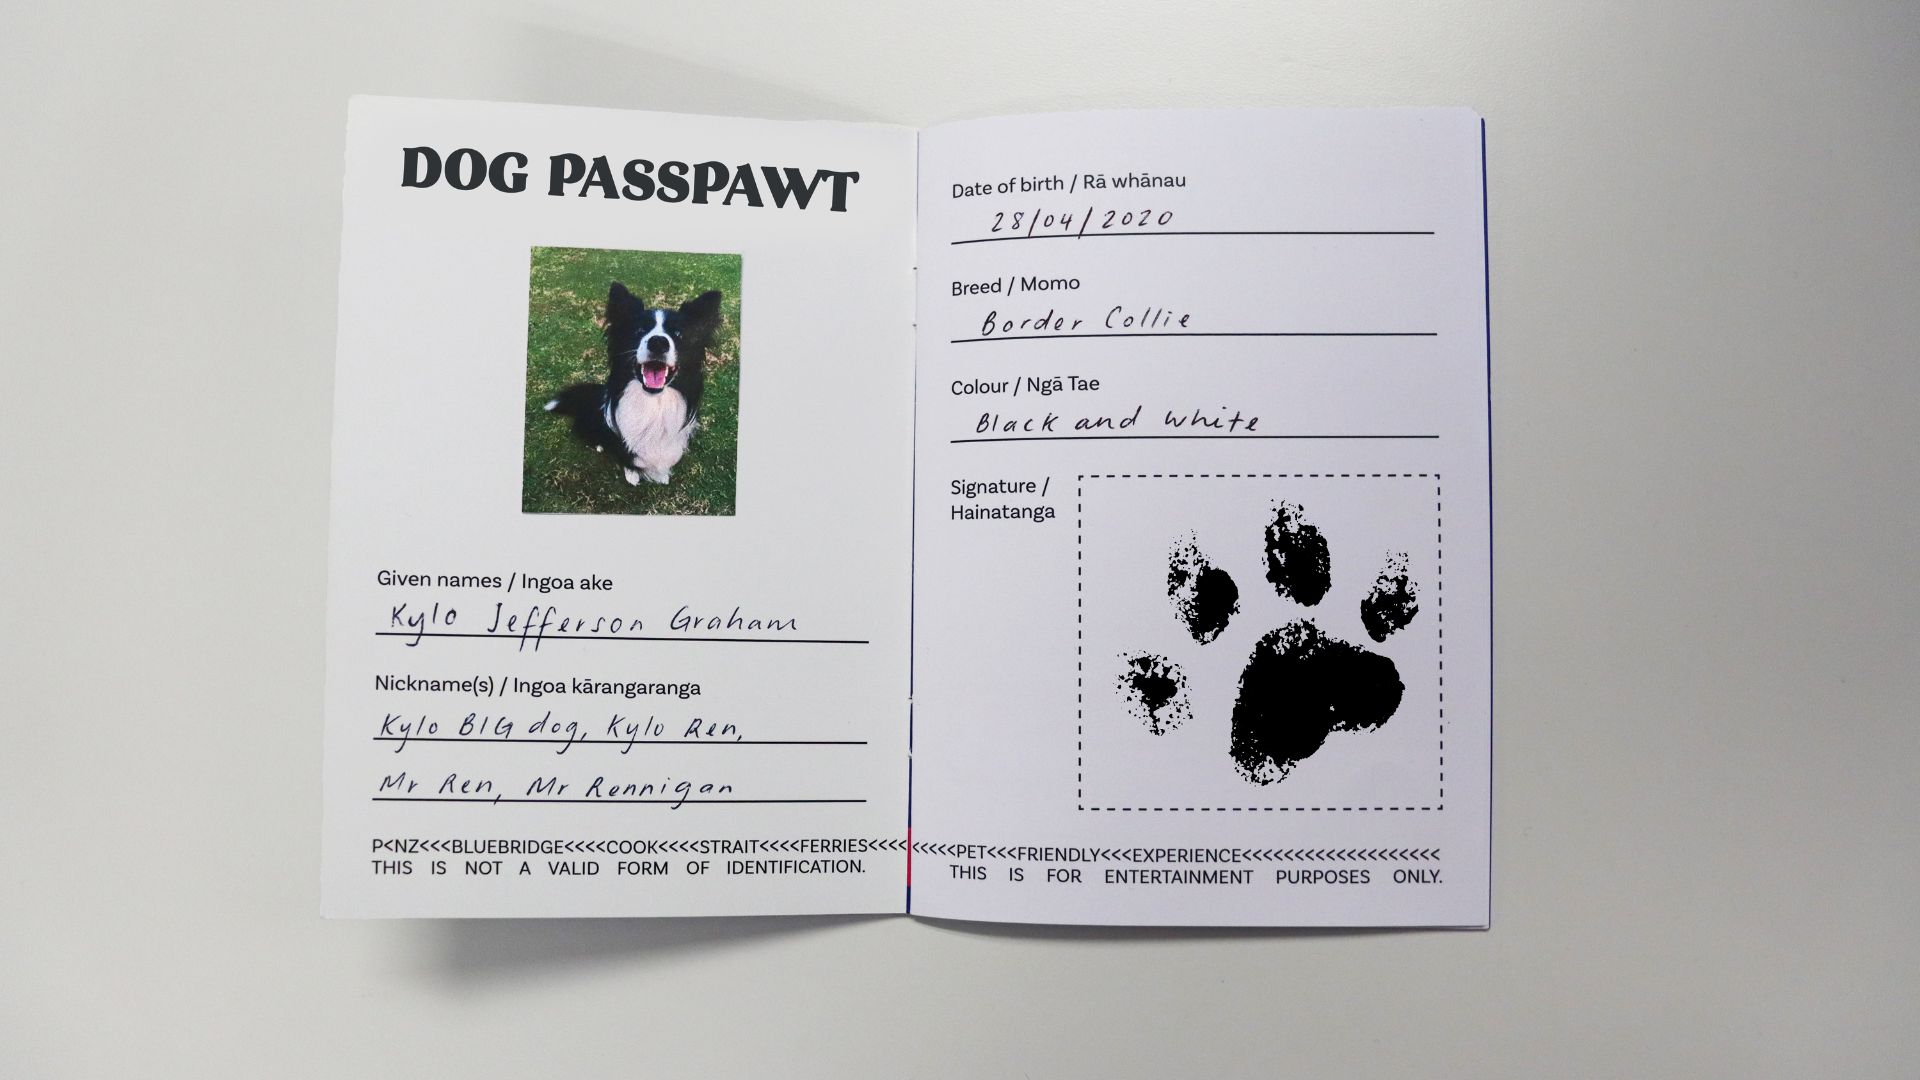 DOG PASSPAWT
Given names / Ingoa ake
Kylo Jefferson Graham
Nickname(s) / Ingoa kārangaranga
Kylo BIG dog, Kylo Ren,
Mr Ren, Mr Rennigan
P<NZ<<<BLUEBRIDGE<<<<COOK<<<<STRAIT<<<<FERRIES<<<<
THIS IS NOT A VALID FORM OF IDENTIFICATION.
Date of birth / Rā whānau
28/04/2020
Breed / Momo
Border Collie
Colour / Ngā Tae
Black and white
Signature /
Hainatanga
<<<<<PET<<<FRIENDLY<<<EXPERIENCE<<<<<<<<<<<<<<<<<<<
THIS IS FOR ENTERTAINMENT PURPOSES ONLY.